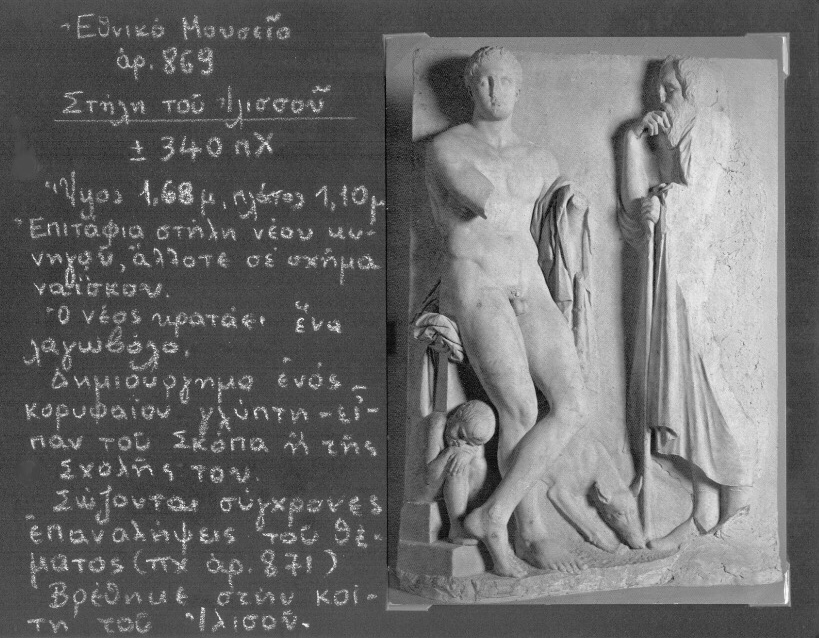 Ἐθνικό Μουσεῖο
ἀρ. 869
Στήλη τοῦ Ἰλισσοῦ
± 340 πΧ
Ὕψος 1,68 μ, πλάτος 1,10 μ
Ἐπιτάφια στήλη νέου κυ-
νηγοῦ, ἄλλοτε σέ σχῆμα
ναΐσκου.
Ὁ νέος κρατάει ἕνα
λαγωβόλο.
Δημιούργημα ἑνός
κορυφαίου γλύπτη - εἶ-
παν τοῦ Σκόπα ἤ τῆς
Σχολῆς του.
Σώζονται σύγχρονες
ἐπαναλήψεις τοῦ θέ-
ματος (πχ ἀρ. 871)
Βρέθηκε στήν κοί-
τη τοῦ Ἰλισοῦ.